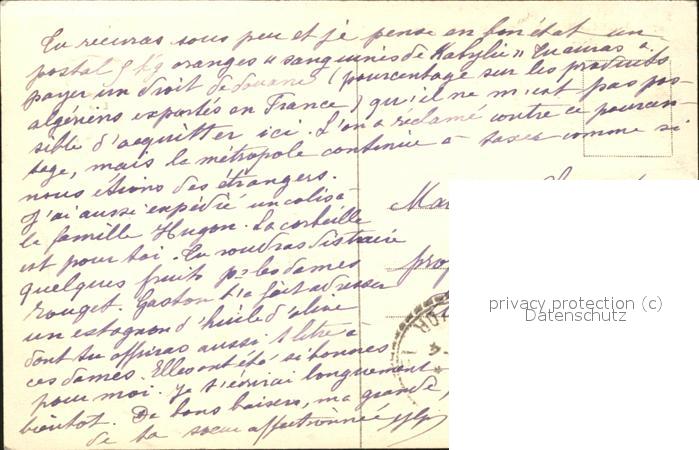 Tu recevras sous peu et je pense en bon état un
postal 5 kg oranges "sanguines de Kabylie" Tu auras à
payer un droit de douane (pourcentage sur les produits
algériens exportés en France) qu'il ne m'est pas pos-
sible d'acquitter ici. L'on a réclamé contre ce pourcen-
tage, mais la métropole continue à taxer comme si
nous étions des étrangers.
J'ai aussi expédié un colis à
la famille Hugon. La corbeille
est pour toi. Tu voudras distraire
quelques fruits pr les dames
Rouget. Gaston t'a fait adresser
un estagnon d'huile d'olive
dont tu offriras aussi 1 litre à
ces dames. Elles ont été si bonnes
pour moi. Je t'écrirai longuement
bientôt. De bons baisers, ma grande,
de ta sœur affectionnée
Ma
prop
privacy protection (c)
Datenschutz